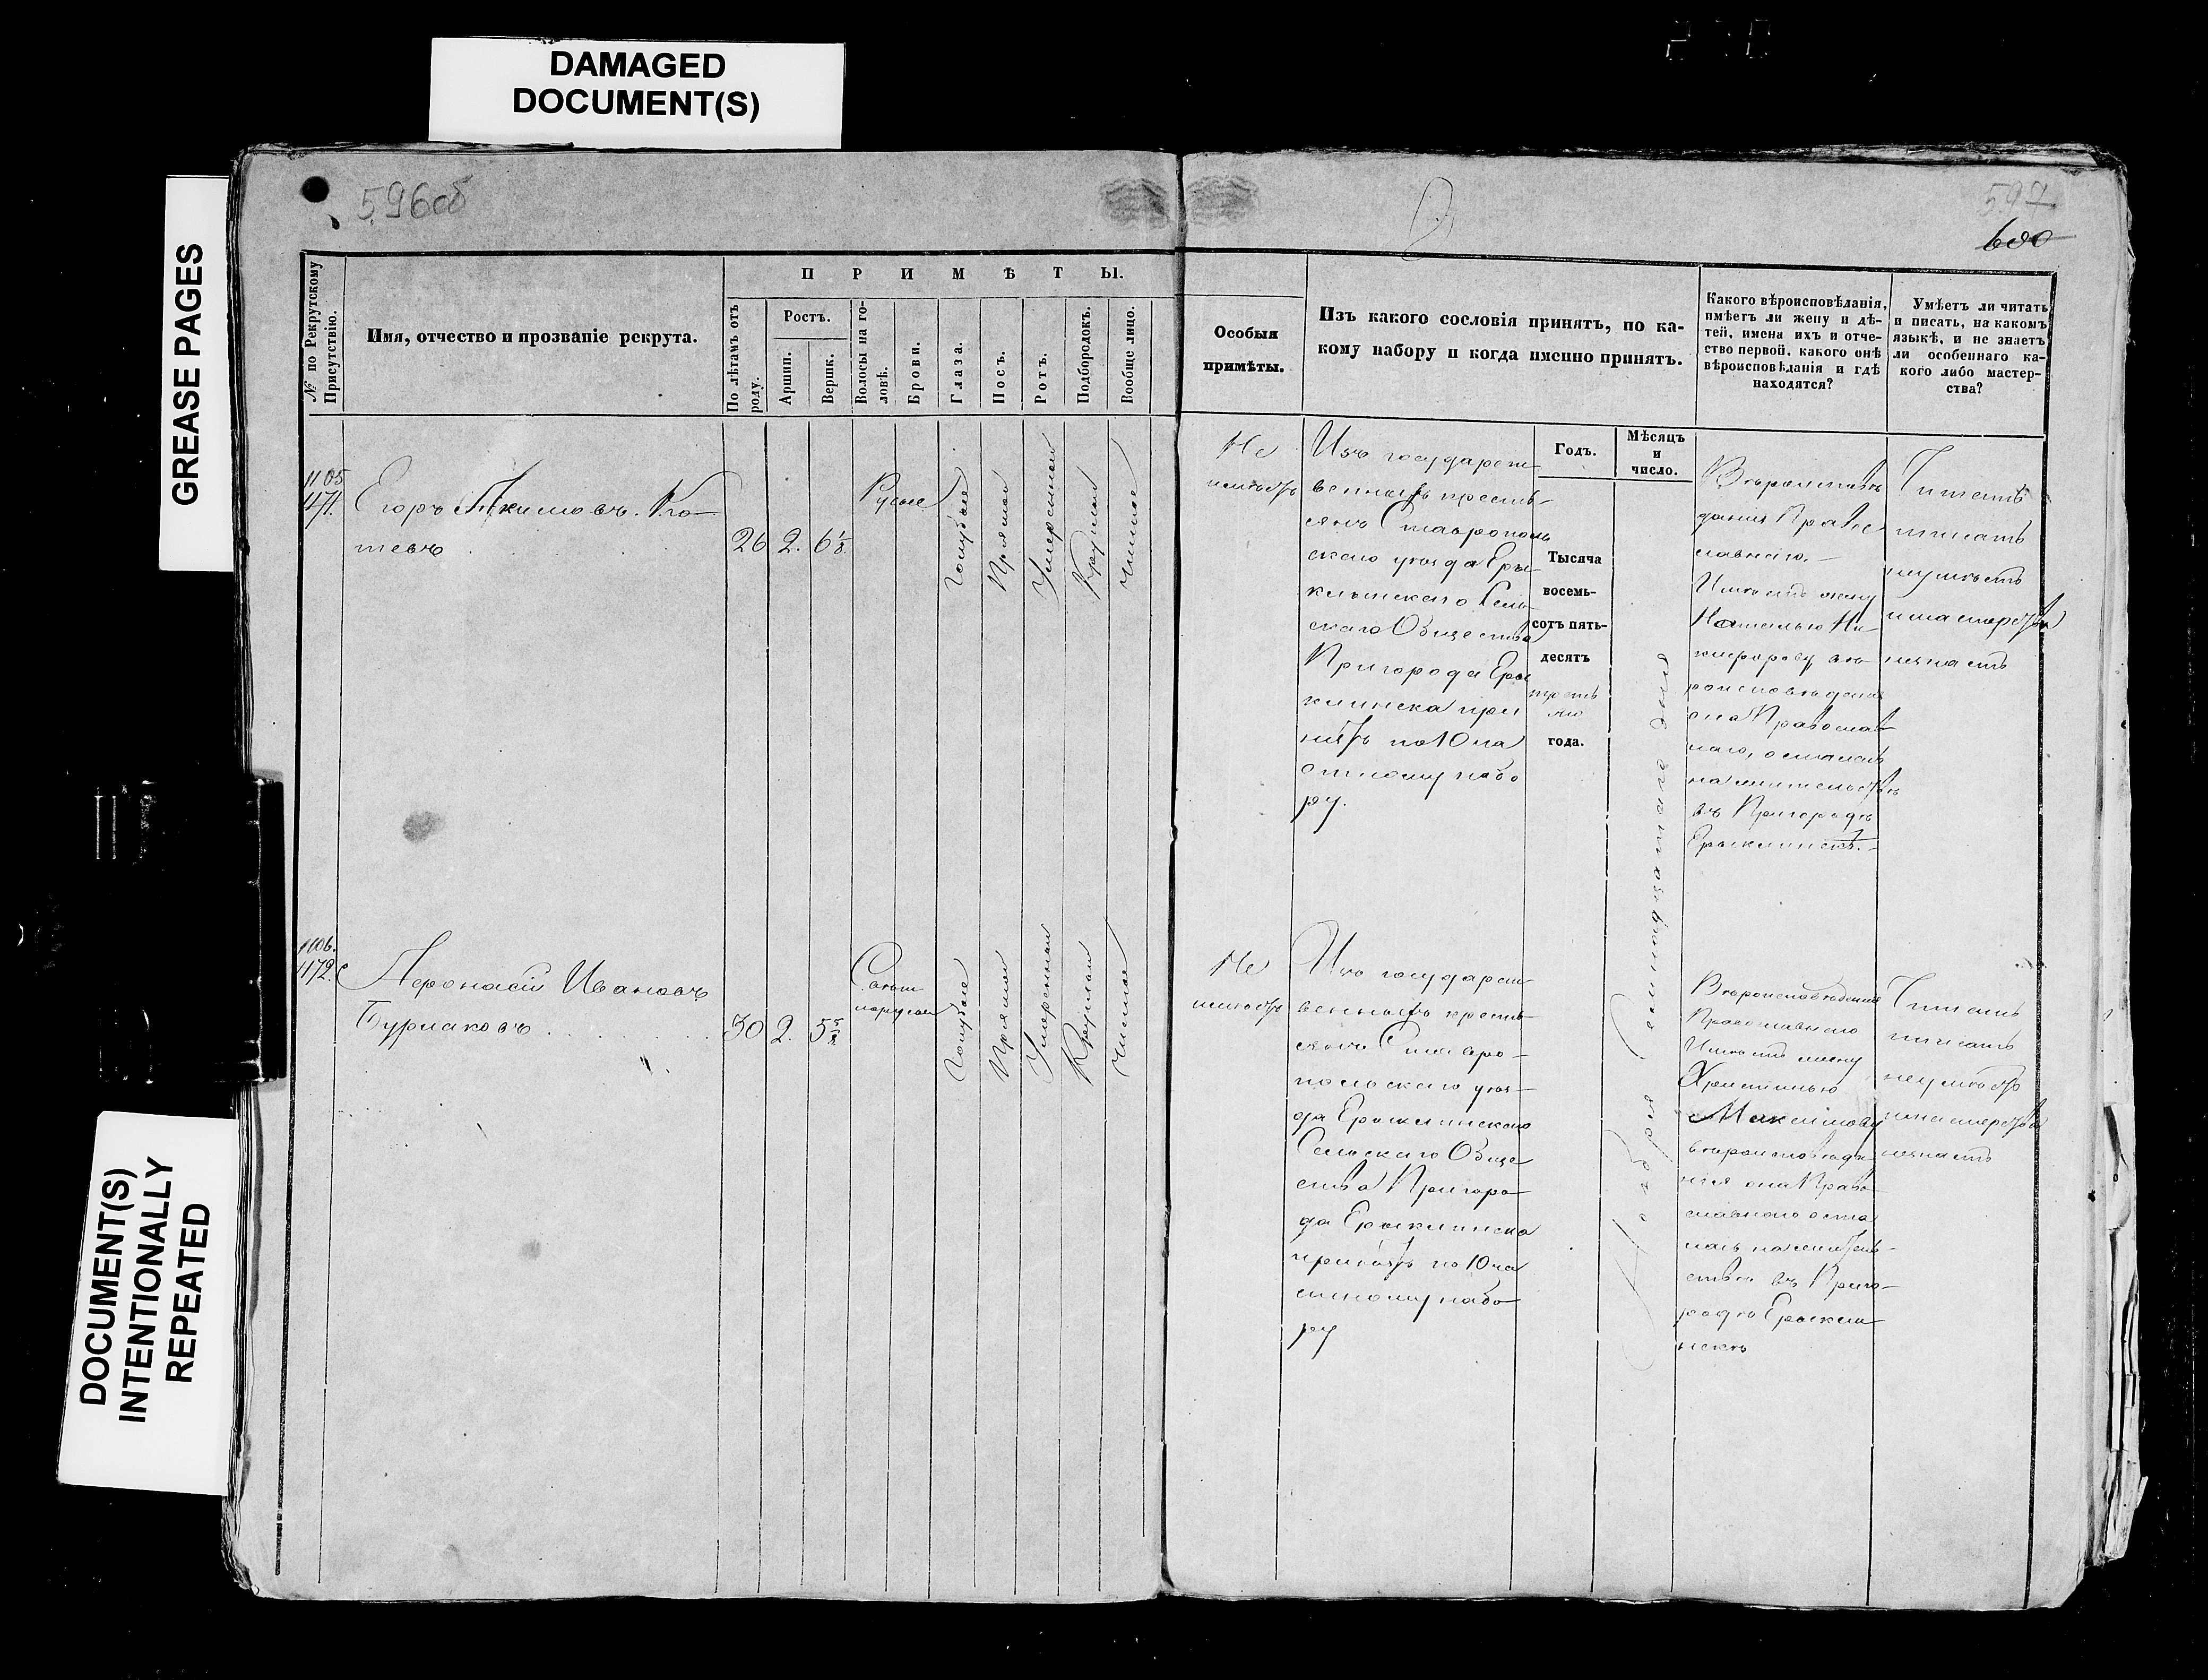 DAMAGED
DOCUMENT(S)
GREASE PAGES
DOCUMENT(S)
INTENTIONALLY
REPEATED
596об
597
600
№ по Рекрутскому
Присутствію.
Имя, отчество и прозваніе рекрута.
ПРИМѢТЫ.
По лѣтамъ отъ
роду.
Ростъ.
Аршин.
Вершк.
Волосы на го-
ловѣ.
Брови.
Глаза.
Носъ.
Ротъ.
Подбородокъ.
Вообще лицо.
Особыя
примѣты.
Изъ какого сословія принятъ, по ка-
кому набору и когда именно принятъ.
Какого вѣроисповѣданія,
имѣетъ ли жену и дѣ-
тей, имена ихъ и отче-
ство первой, какого онѣ
вѣроисповѣданія и гдѣ
находятся?
Умѣетъ ли читать
и писать, на какомъ
языкѣ, и не знаетъ
ли особеннаго ка-
кого либо мастер-
ства?
Годъ.
Мѣсяцъ
и
число.
1105
471.
Егоръ Акимовъ. Ко-
тевъ
26
2.
6 1/8
Русые
Голубые
Прямой
Умеренный
Круглой
Чистое
Не
имѣетъ
Изъ государст-
венныхъ кресть-
янъ Ставрополь
скаго уезда Еры-
клинскаго Сель-
скаго Общества
Пригорода Еры
клинска при
нятъ по 10 ча
стному набо
ру.
Тысяча
восемь-
сотъ пять-
десятъ
третья
го
года.
Ноября Семнадцатаго дня
Вѣроисповѣ
данія Право
славнаго.-
Имѣетъ жену
Наталью Ни-
кифорову вѣ-
роисповѣданія
она Православ-
наго, осталась
на жительствѣ
въ Пригородѣ
Ерыклинскѣ.-
Читать
писать
неумѣетъ
и мастерства
незнаетъ
1106.
472.
Афонасій Ивановъ
Бурлаковъ
30
2.
5 5/8
Светло
русые
Голубые
Прямой
Умеренной
Круглой
Чистое
Не
имѣетъ
Изъ государст-
венныхъ кресть-
янъ Ставро-
польскаго уез-
да Ерыклинскаго
Сельскаго Обще-
ства Пригоро-
да Ерыклинска
принятъ по 10 ча
стному набо-
ру
Вѣроисповѣданія
Православнаго
Имѣетъ жену
Христинью
Максимову
вѣроисповѣда
нія она Право-
славнаго оста
лась на житель-
ствѣ въ Приго-
родѣ Ерыкли-
нскѣ
Читать
писать
неумѣетъ
и мастерства
незнаетъ